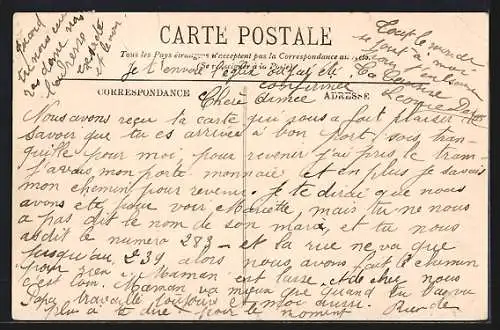 CARTE POSTALE
Tous les Pays étrangers n'acceptent pas la Correspondance au recto
(Se renseigner à la Poste)
Je t'envoie l'église où j'ai été
confirmée
CORRESPONDANCE
ADRESSE
Chère Aimée
Nous avons reçu ta carte qui nous a fait plaisir de
savoir que tu es arrivée à bon port, sois tran-
quille pour moi, pour revenir j'ai pris le tram
j'avais mon porte monnaie et en plus je savais
mon chemin pour revenir. Je te dirai que nous
avons été pour voir Mariette, mais tu ne nous
a pas dit le nom de son mari, et tu nous
as dit le numéro 283 - et la rue ne va que
jusqu'au 239 alors nous avons fait le chemin
pour rien. Maman est lasse.
c'est loin. Maman va mieux que quand tu
Papa travaille toujours et moi aussi.
plus à te dire pour le moment
Tout le monde
se joint à moi
pour t'embrasser
Ta Cousine
nous
ton adresse
exacte